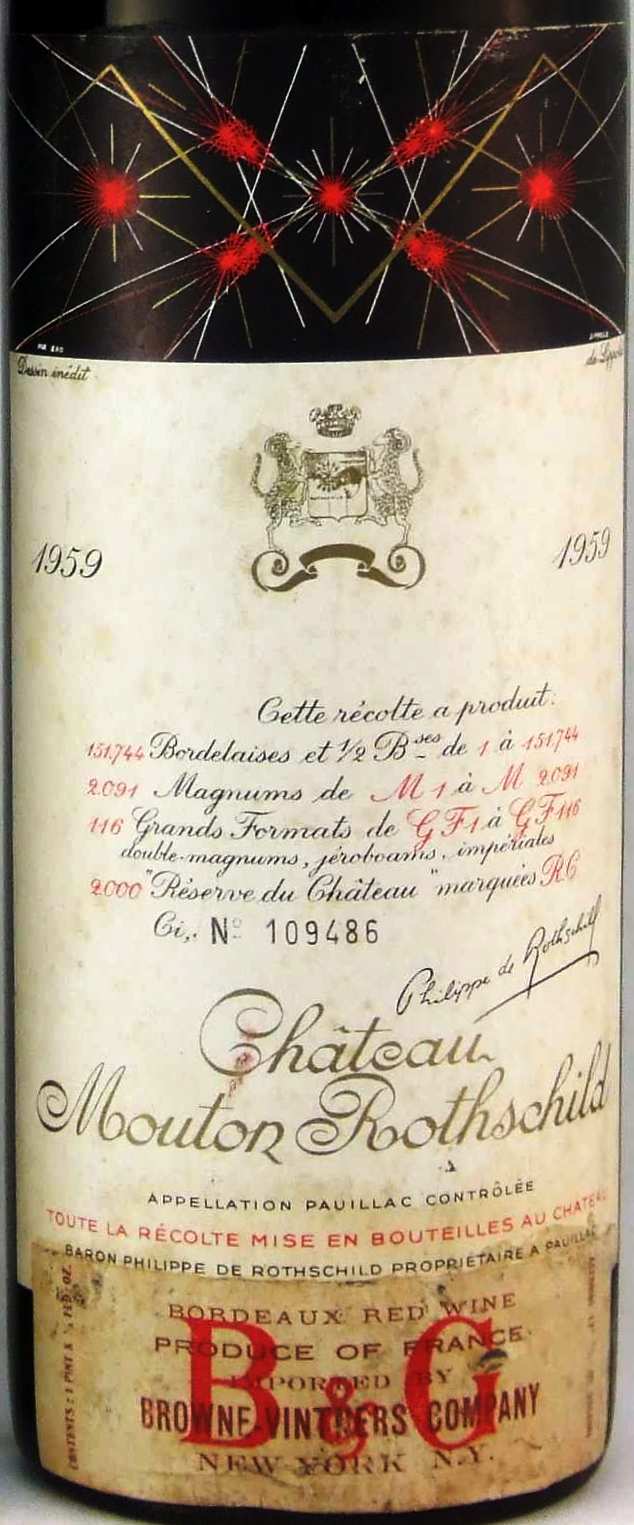 Dessin inédit
de Lippold
1959
1959
Cette récolte a produit:
151.744 Bordelaises et 1/2 Bses de 1 à 151.744
2091 Magnums de M 1 à M 2091
116 Grands Formats de GF1 à GF116
double-magnums, jéroboams, impériales
2000 "Réserve du Château" marquées RC
Ci,. No 109486
Philippe de Rothschild
Château
Mouton Rothschild
APPELLATION PAUILLAC CONTRÔLÉE
TOUTE LA RÉCOLTE MISE EN BOUTEILLES AU CHATEAU
BARON PHILIPPE DE ROTHSCHILD PROPRIÉTAIRE A PAUILLAC
BORDEAUX RED WINE
PRODUCE OF FRANCE
B & G
IMPORTED BY
BROWNE-VINTNERS COMPANY
NEW YORK N.Y.
CONTENTS: 1 PINT